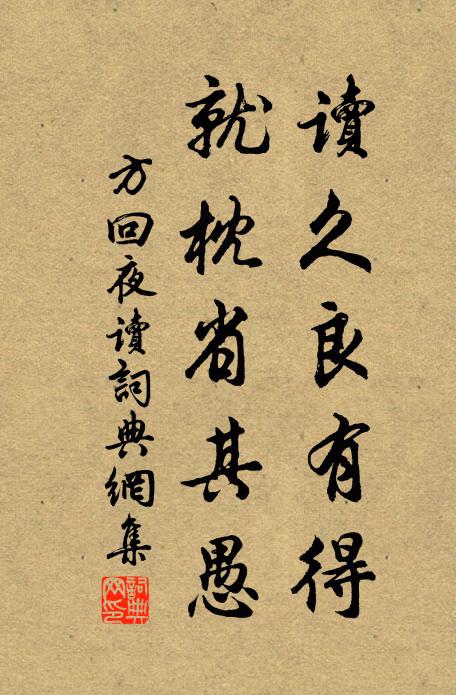 讀久良有得
就枕省其愚
方回夜讀詞典網集
詞典網印